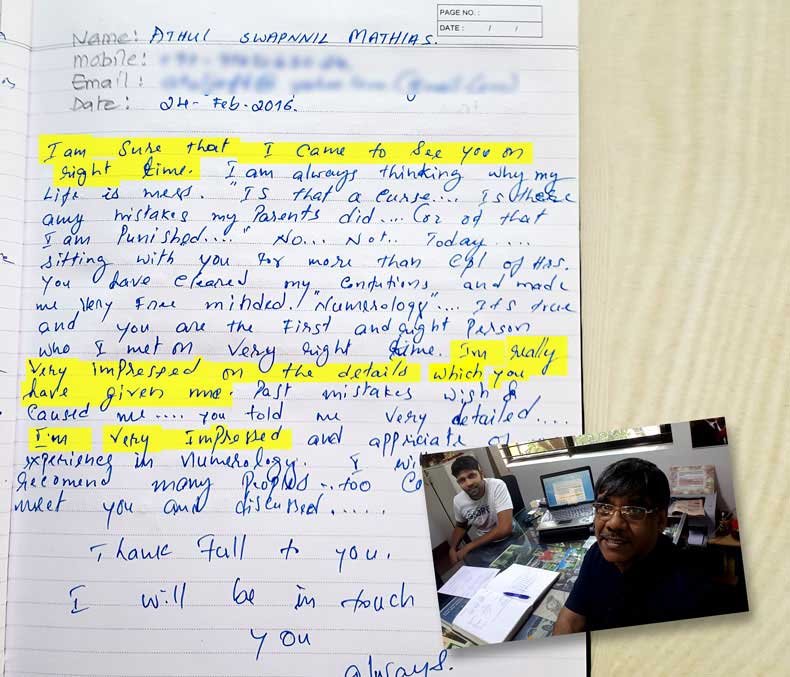 PAGE NO.:
DATE: / /
Name: ATHUL SWAPNNIL MATHIAS.
mobile:
Email:
Date: 24-Feb-2016.
I am Sure that I came to see you on
right time. I am always thinking why my
Life is mess. "Is that a curse.... Is these
any mistakes my Parents did.... (or of that
I am Punished...." No... Not.. Today....
sitting with you for more than cpl of Hrs.
you have cleared my and made
me very Free minded. "Numerology".... Its true
and you are the First and right Person
who I met on very right time. I'm really
very impressed on the details which you
have given me. Past mistakes
caused me.... you told me very detailed....
I'm very Impressed and appriciate
experience in Numerology. I
recomend many Peoples.. too
meet you and discussed.....
Thank Full to you.
I will be in touch
you
always.